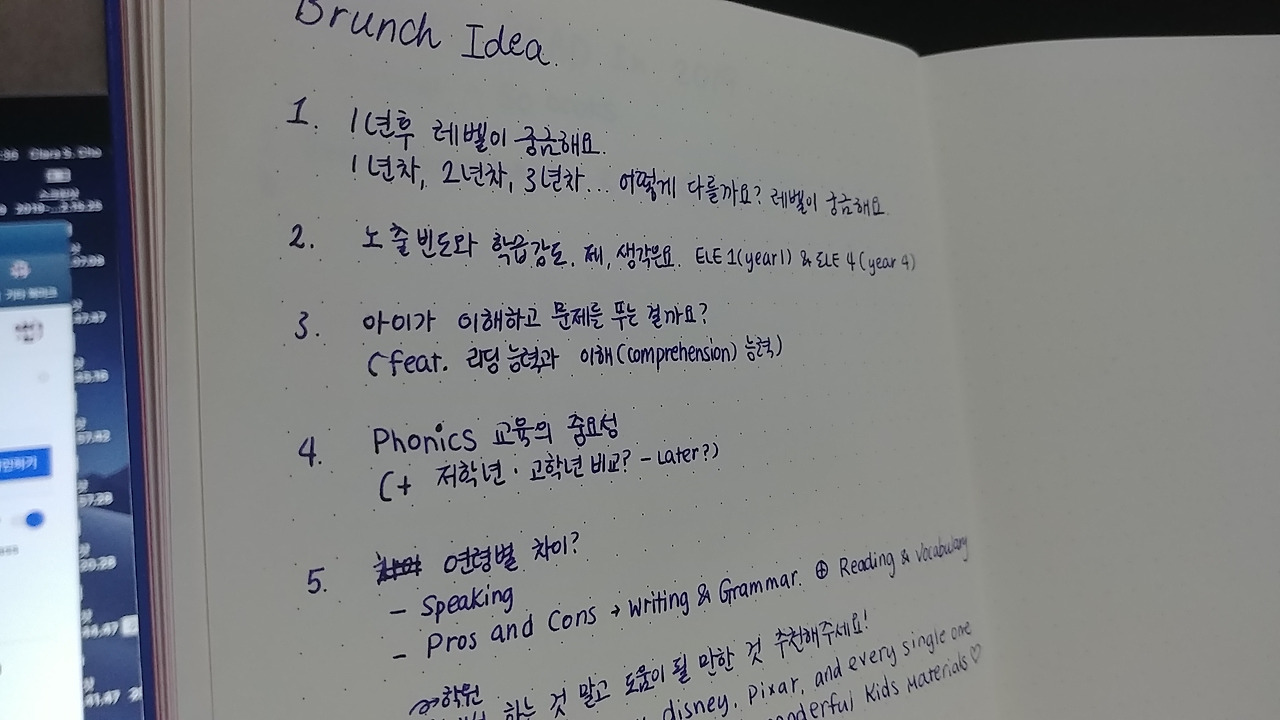 Brunch Idea.
1. 1년후 레벨이 궁금해요.
1년차, 2년차, 3년차... 어떻게 다를까요? 레벨이 궁금해요
2. 노출빈도와 학습강도. 제, 생각은요. ELE 1(year1) & ELE 4(year 4)
3. 아이가 이해하고 문제를 푸는 걸까요?
(feat. 리딩 능력과 이해(comprehension) 능력)
4. Phonics 교육의 중요성
(+ 저학년 · 고학년 비교? - Later?)
5. 연령별 차이?
- Speaking
- Pros and Cons → Writing & Grammar. ⊕ Reading & Vocabulary
학원
하는 것 말고 도움이 될 만한 것 추천해주세요!
disney, Pixar, and every single one
Kids Materials♡
Clara S. Cho
스크린샷